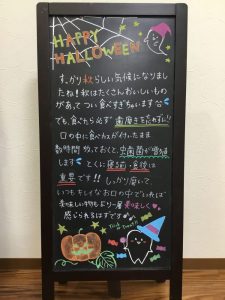 HAPPY
HALLOWEEN
すっかり秋らしい気候になりまし
たね!秋はたくさんおいしいもの
があって つい食べすぎちゃいます
でも、食べたら必ず歯磨きを忘れずに!!
口の中に食べカスが付いたまま
数時間放っておくと、虫歯菌が増加
します とくに寝る前・食後は
重要です!! しっかり磨いて、
いつもキレイなお口の中でいれば
美味しい物もより一層美味しく
感じられるはずです
Trick or Treat!!